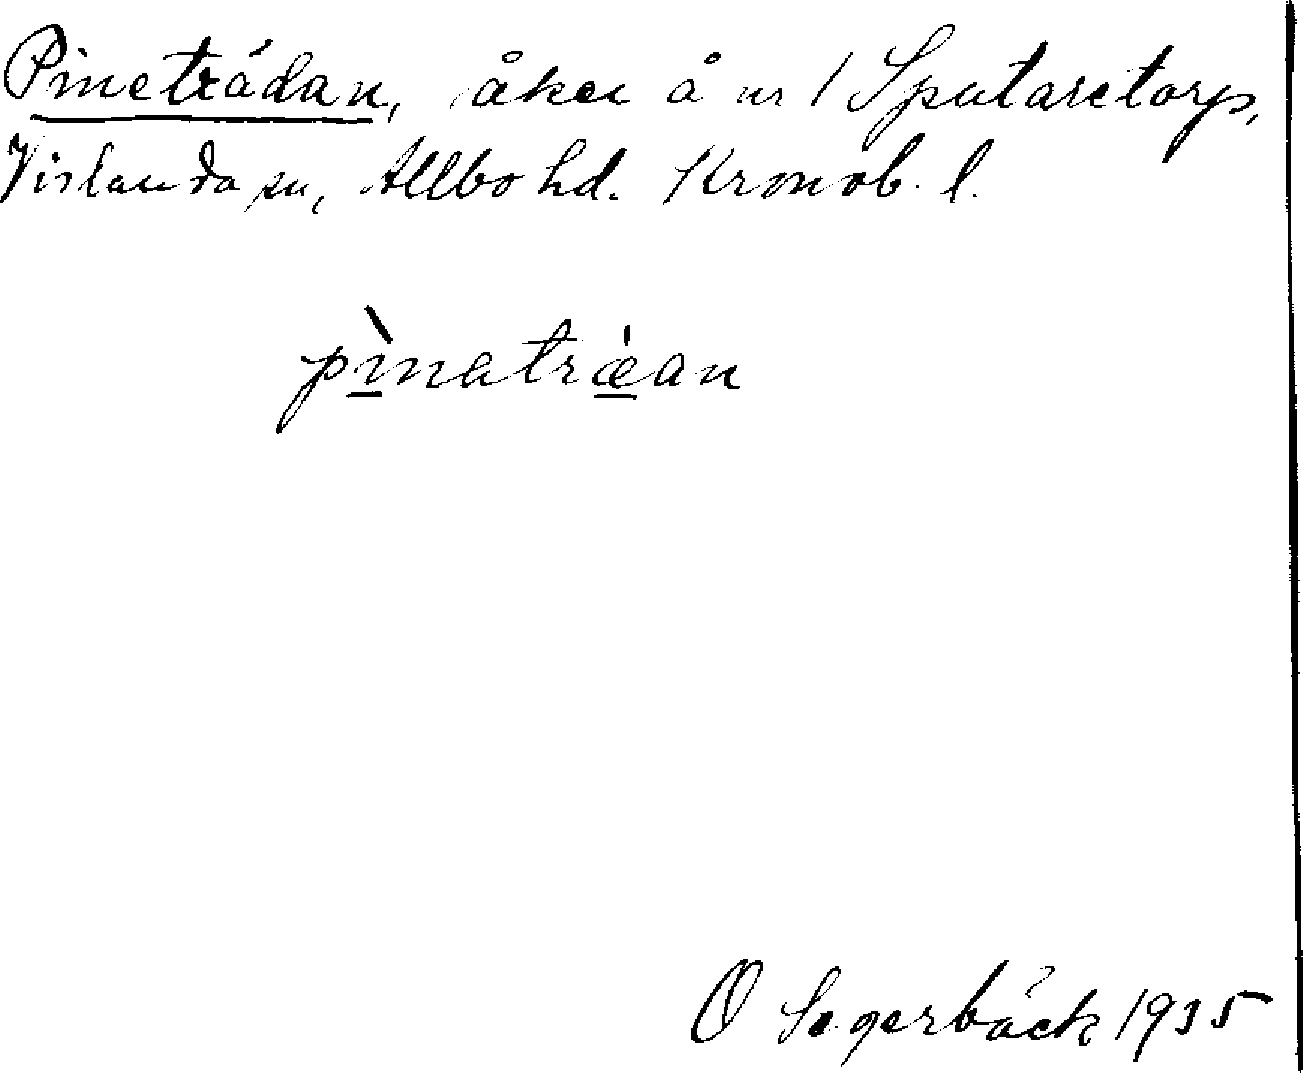 Pineträdan, åker å nr 1 Sputaretorp,
Vislanda sn, Allbo hd. Kronob. l.
pìnatræ̍an
O Segerbäck 1935